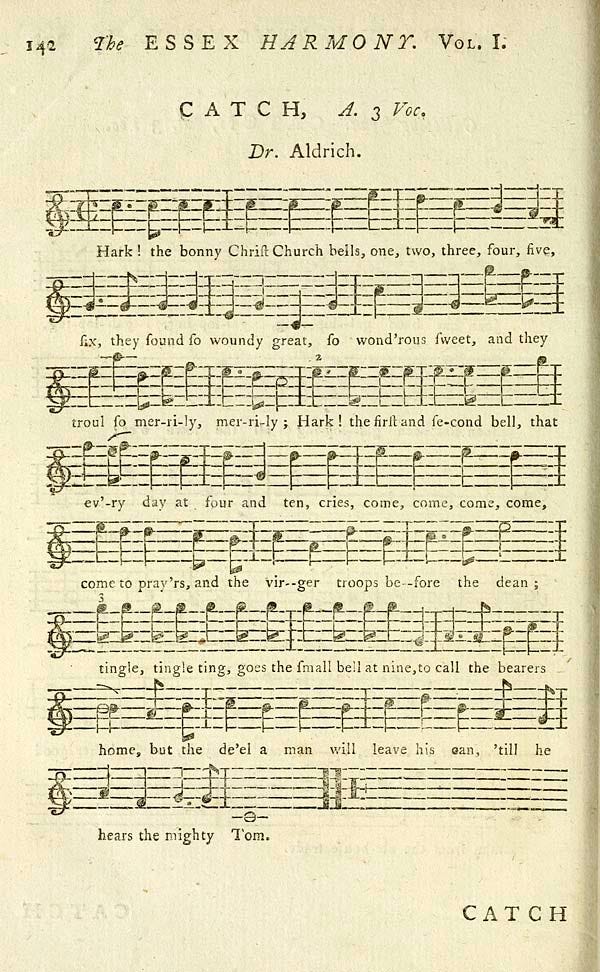 142 The ESSEX HARMONY. VOL. I.
CATCH, A. 3 Voc.
Dr. Aldrich.
Hark! the bonny Chriſt Church bells, one, two, three, four, five,
ſix, they ſound ſo woundy great, ſo wond'rous ſweet, and they
2
troul ſo mer-ri-ly, mer-ri-ly; Hark! the firſt and ſe-cond bell, that
ev'-ry day at four and ten, cries, come, come, come, come,
come to pray'rs, and the vir--ger troops be--fore the dean;
3
tingle, tingle ting, goes the ſmall bell at nine, to call the bearers
home, but the de'el a man will leave his can, 'till he
hears the mighty Tom.
CATCH